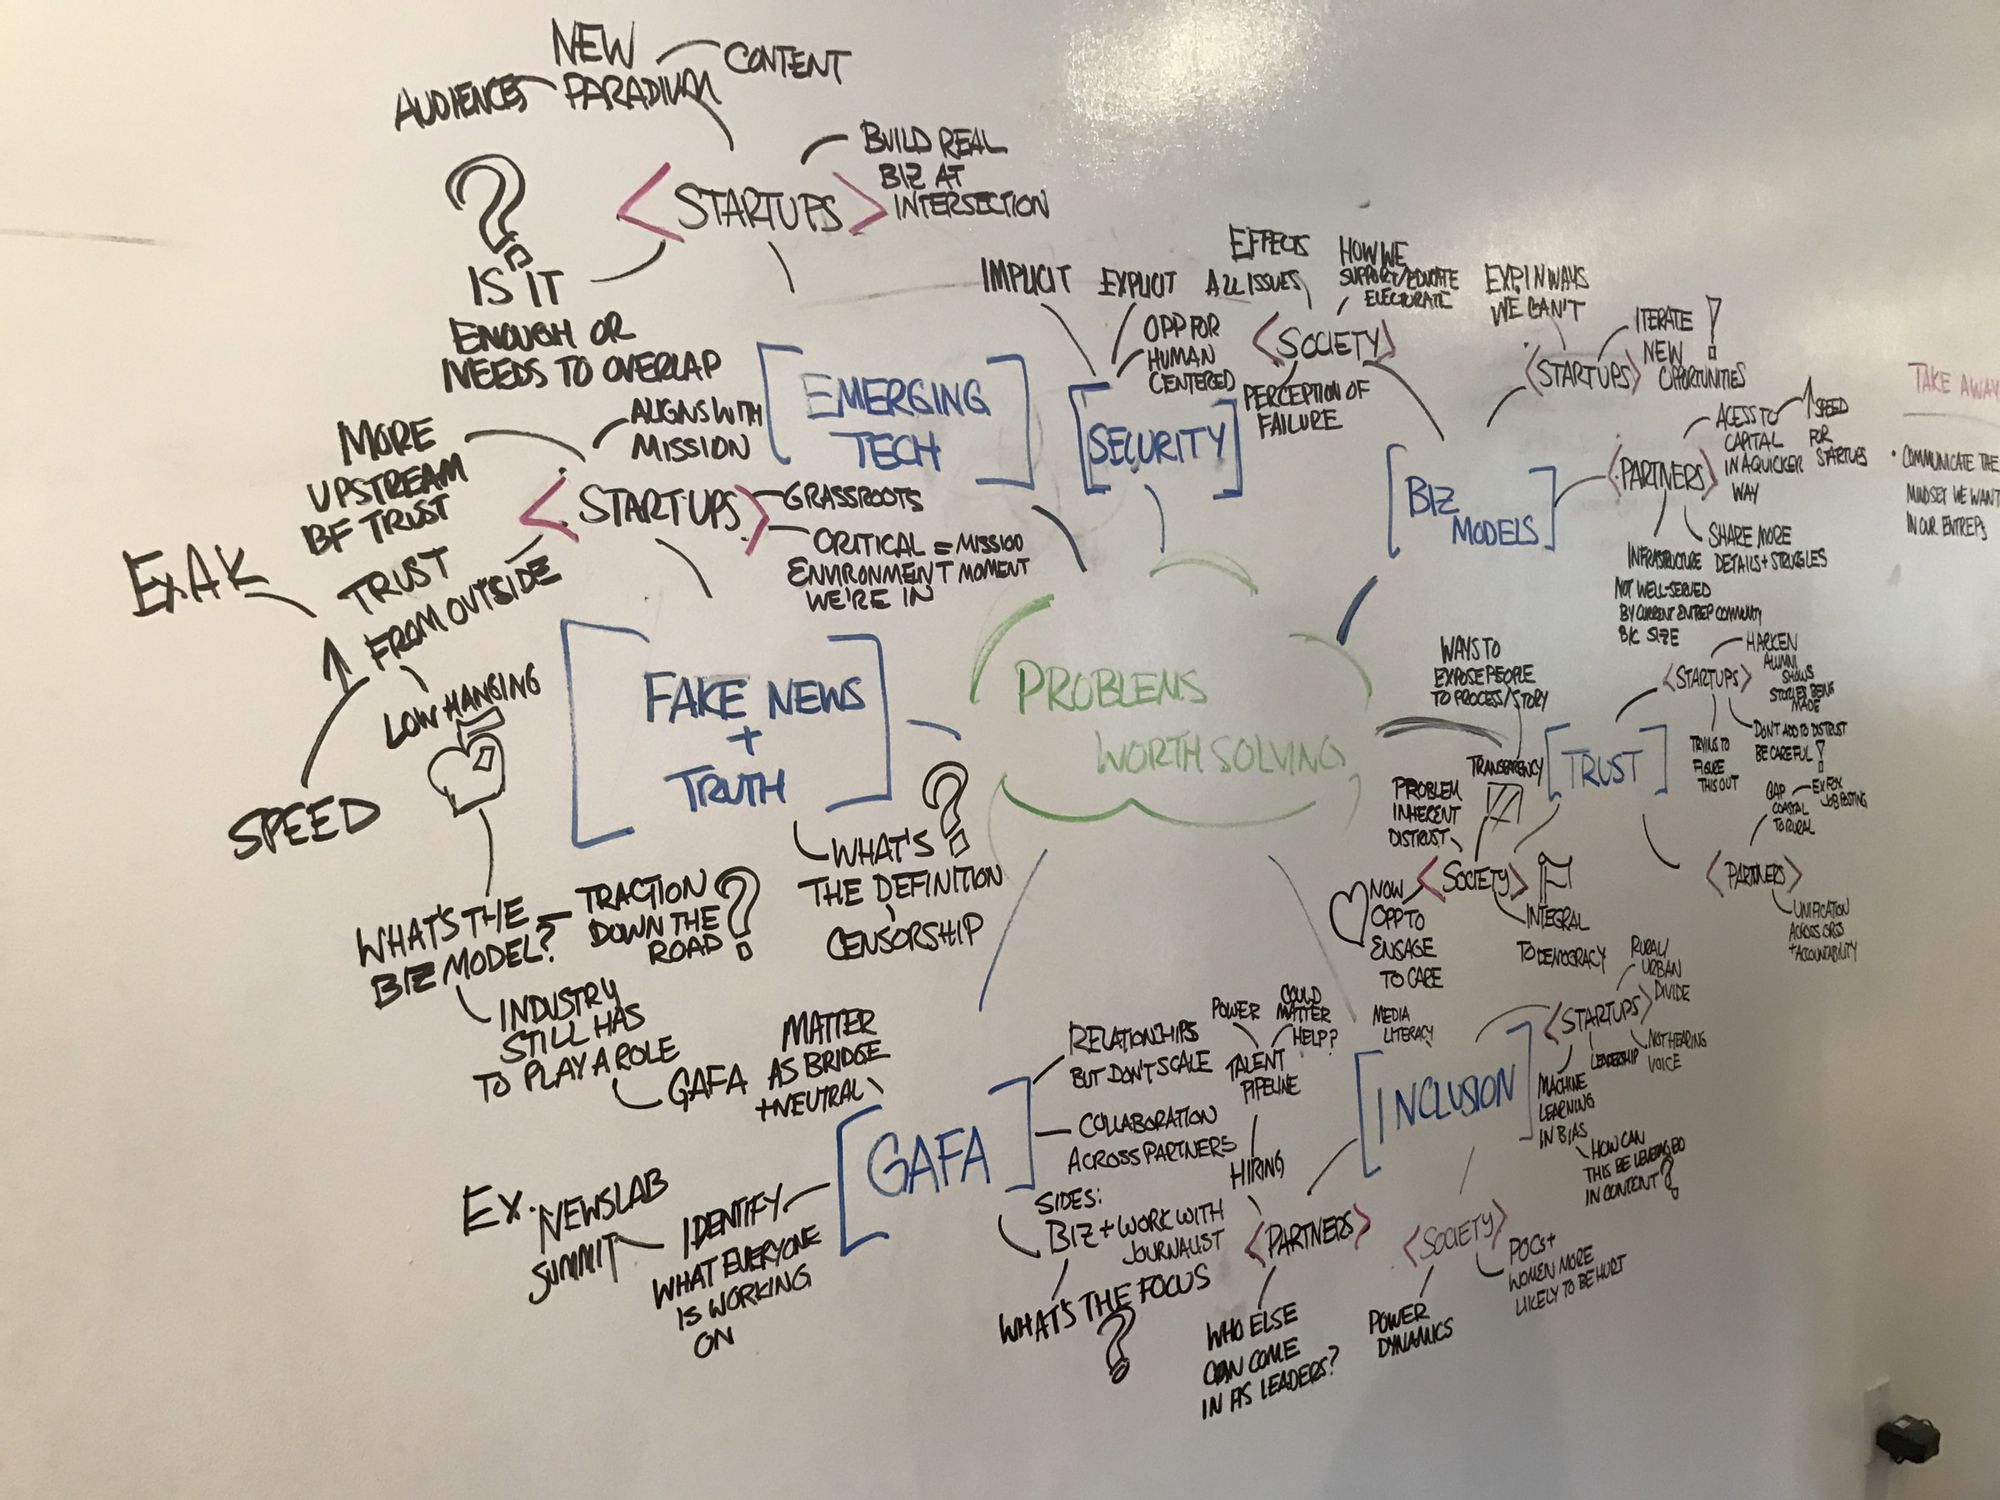 NEW
PARADIUM
AUDIENCES
CONTENT
BUILD REAL
BIZ AT
INTERSECTION
<STARTUPS>
?
IS IT
ENOUGH OR
NEEDS TO OVERLAP
[EMERGING
TECH]
IMPLICIT
EXPLICIT
OPP FOR
HUMAN
CENTERED
[SECURITY]
EFFECTS
ALL ISSUES
HOW WE
SUPPORT/EDUCATE
ELECTORATE
<SOCIETY>
PERCEPTION OF
FAILURE
EXP. IN WAYS
WE CAN'T
<STARTUPS>
ITERATE
NEW
OPPORTUNITIES
!
[BIZ
MODELS]
<PARTNERS>
ACESS TO
CAPITAL
IN A QUICKER
WAY
↑ SPEED
FOR
STARTUPS
SHARE MORE
DETAILS + STRUGGLES
INFRASTRUCTURE
NOT WELL-SERVED
BY CURRENT ENTREP COMMUNITY
B/C SIZE
TAKE AWAY
• COMMUNICATE THE
MINDSET WE WANT
IN OUR ENTREPS
MORE
UPSTREAM
BF TRUST
ALIGNS WITH
MISSION
<STARTUPS>
GRASSROOTS
CRITICAL = MISSION
ENVIRONMENT MOMENT
WE'RE IN
TRUST
FROM OUTSIDE
EX. AK
↑
SPEED
LOW HANGING
[FAKE NEWS
+
TRUTH]
WHAT'S
THE DEFINITION
?
CENSORSHIP
WHAT'S THE
BIZ MODEL?
TRACTION
DOWN THE
ROAD
?
INDUSTRY
STILL HAS
TO PLAY A ROLE
GAFA
PROBLEMS
WORTH SOLVING
WAYS TO
EXPOSE PEOPLE
TO PROCESS/STORY
TRANSPARENCY
[TRUST]
<STARTUPS>
HARKEN
ALUMNI
SHOWS
STORIES BEING
MADE
DON'T ADD TO DISTRUST
BE CAREFUL!
TRYING TO
FIGURE
THIS OUT
GAP
COASTAL
TO RURAL
EX FOX
JOB POSTING
<PARTNERS>
UNIFICATION
ACROSS ORGS
+ ACCOUNTABILITY
PROBLEM
INHERENT
DISTRUST
<SOCIETY>
NOW
OPP TO
ENGAGE
TO CARE
INTEGRAL
TO DEMOCRACY
MEDIA
LITERACY
[INCLUSION]
<STARTUPS>
RURAL/
URBAN
DIVIDE
NOT HEARING
VOICE
LEADERSHIP
MACHINE
LEARNING
IN BIAS
HOW CAN
THIS BE LEVERAGED
IN CONTENT?
<SOCIETY>
POCS +
WOMEN MORE
LIKELY TO BE HURT
POWER
DYNAMICS
<PARTNERS>
HIRING
TALENT
PIPELINE
POWER
COULD
MATTER
HELP?
WHO ELSE
CAN COME
IN AS LEADERS?
[GAFA]
MATTER
AS BRIDGE
+ NEUTRAL
RELATIONSHIPS
BUT DON'T SCALE
COLLABORATION
ACROSS PARTNERS
SIDES:
BIZ + WORK WITH
JOURNALIST
WHAT'S THE FOCUS
?
IDENTIFY
WHAT EVERYONE
IS WORKING
ON
EX. NEWSLAB
SUMMIT